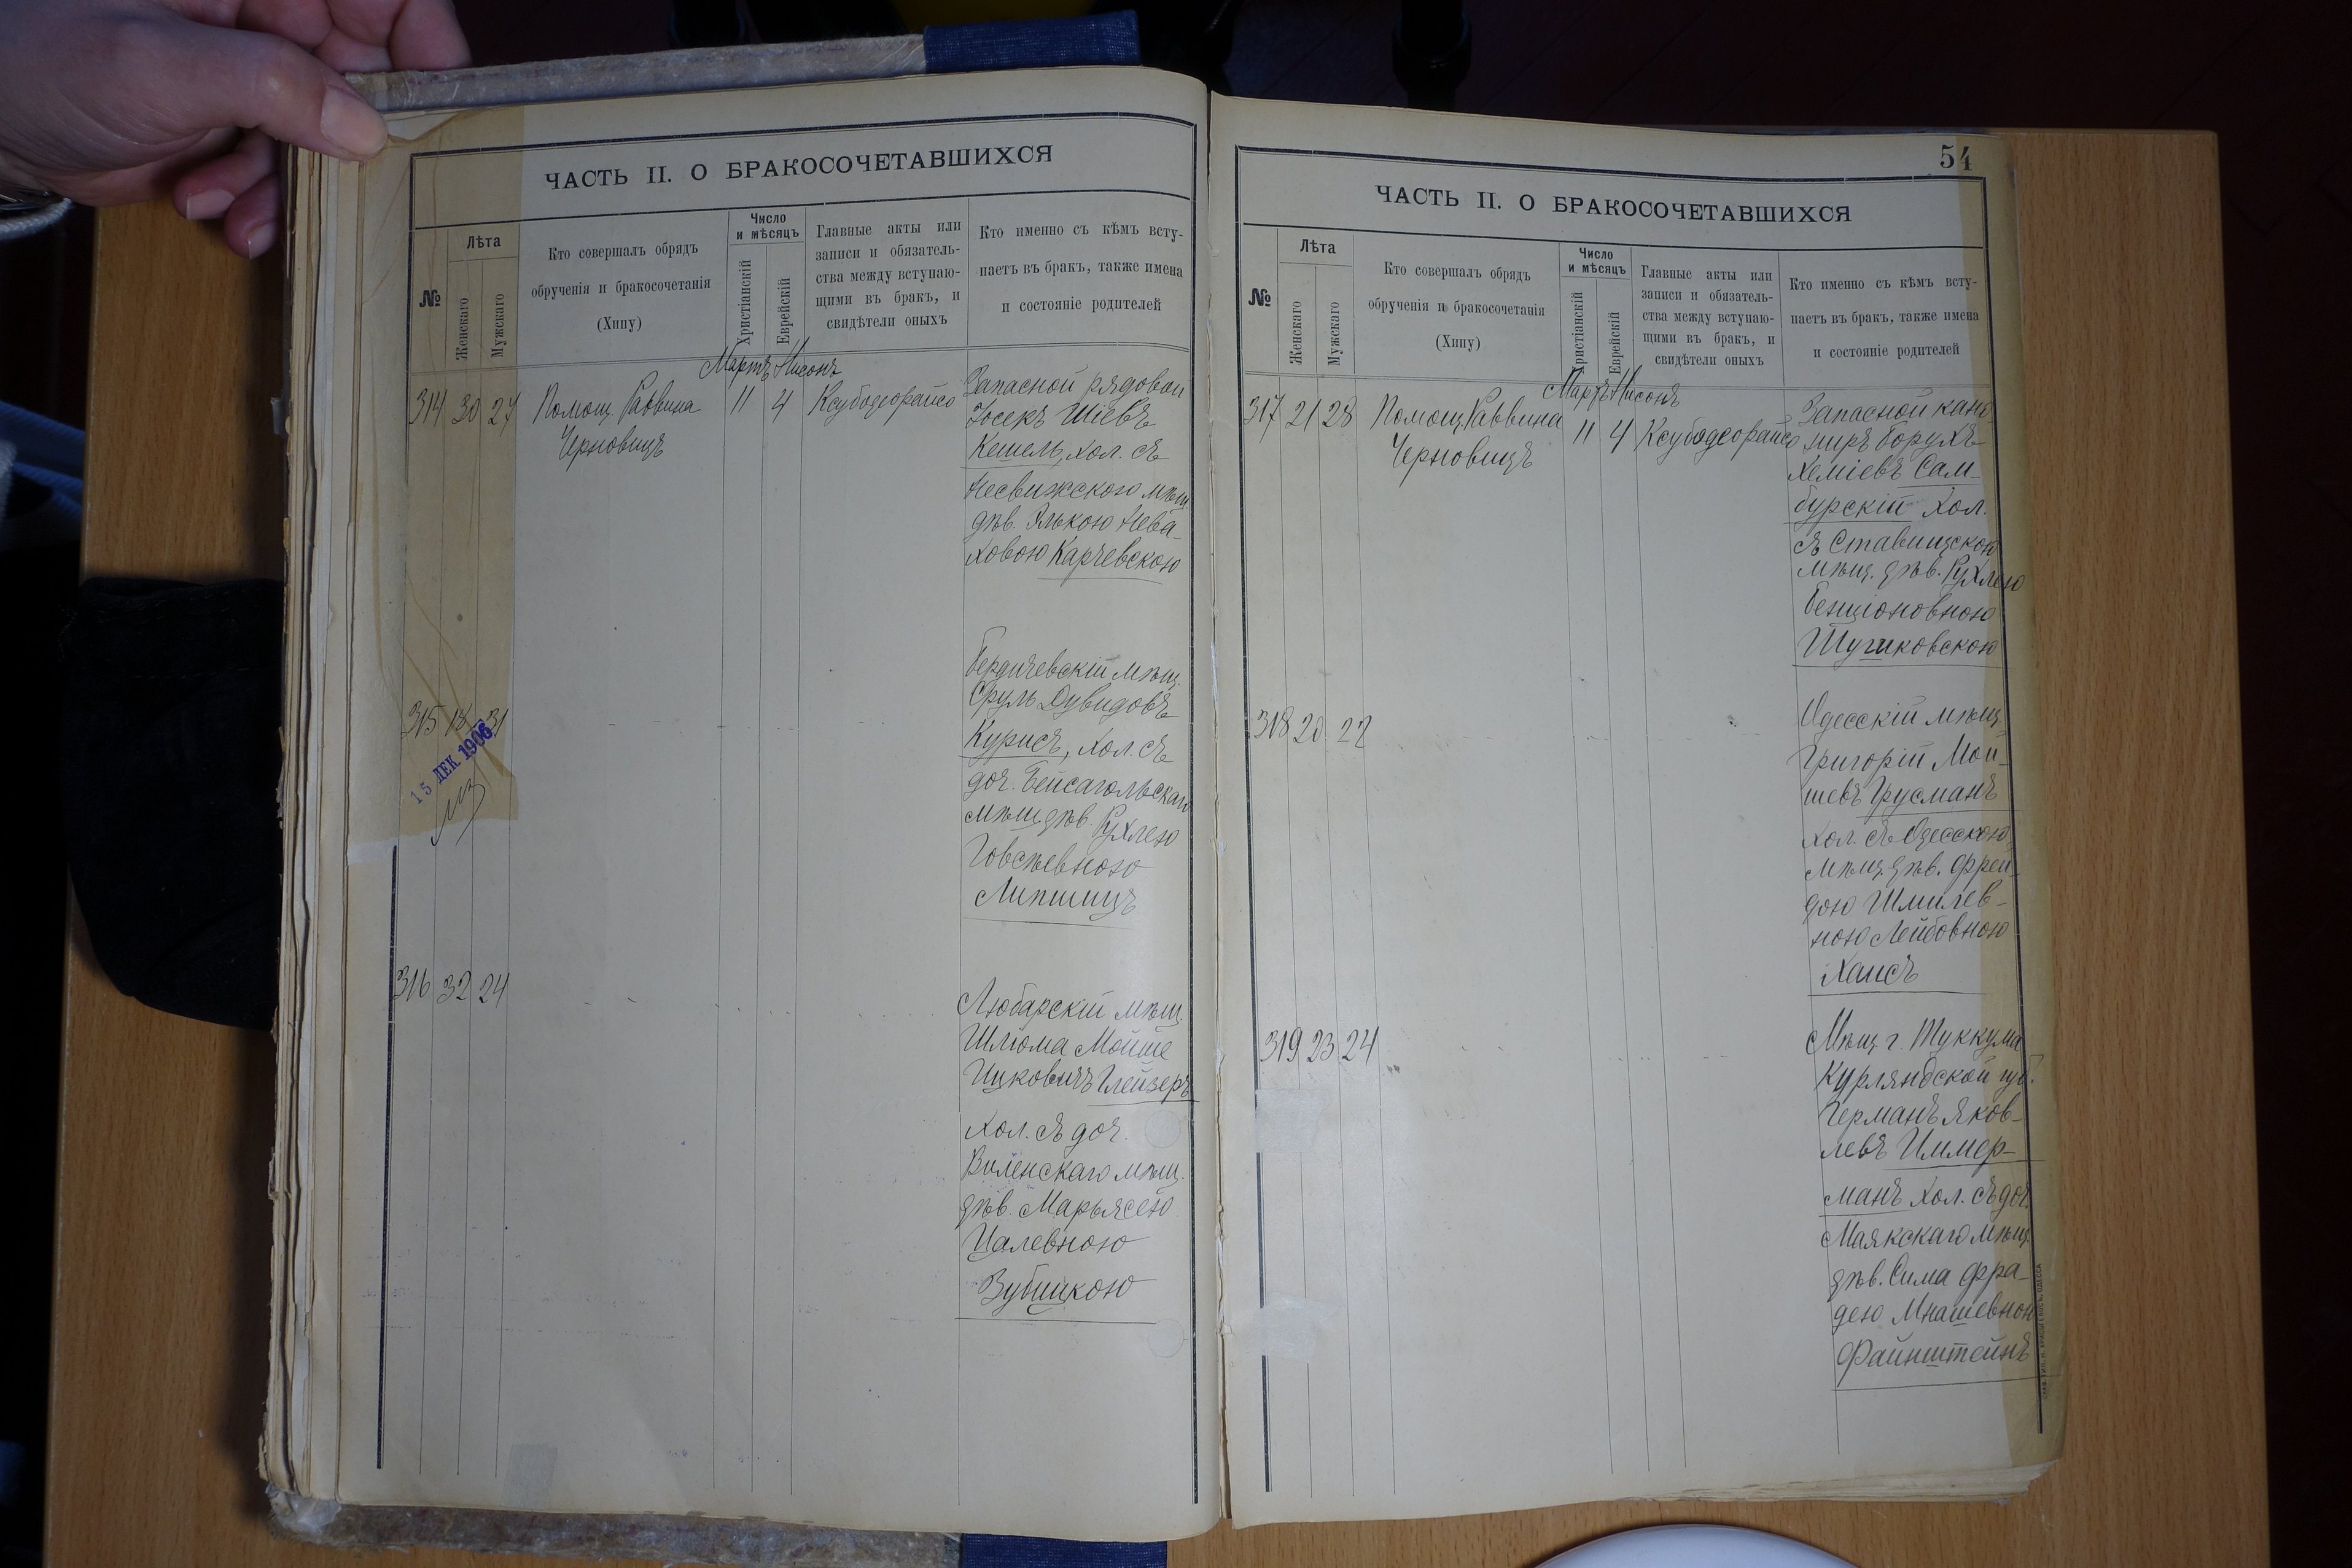 ЧАСТЬ II. О БРАКОСОЧЕТАВШИХСЯ
№
Лѣта
Женскаго
Мужскаго
Кто совершалъ обрядъ
обрученія и бракосочетанія
(Хипу)
Число
и мѣсяцъ
Христіанскій
Еврейскій
Главные акты или
записи и обязатель-
ства между вступаю-
щими въ бракъ, и
свидѣтели оныхъ
Кто именно съ кѣмъ всту-
паетъ въ бракъ, также имена
и состояніе родителей
Мартъ Нисонъ
314 30 27 Помощ. Раввина 11 4 Ксубодеорайсо
Черновицъ
Запасной рядовой
Іосекъ Шіевъ
Кешель, хол. съ
Несвижскою мѣщ.
дѣв. Элькою Нева-
ховою Карчевскою
315 18 31
15 ДЕК 1906
Бердичевскій мѣщ.
Сруль Дувидовъ
Курисъ, хол. съ
доч. Бейсагольскаго
мѣщ. дѣв. Рухлею
Іовсѣевною
Липшицъ
316 32 24
Любарскій мѣщ.
Шлёма Мойше
Ицковичъ Глейзеръ
хол. съ доч.
Виленскаго мѣщ.
дѣв. Марьясею
Цалевною
Зубицкою
54
ЧАСТЬ II. О БРАКОСОЧЕТАВШИХСЯ
№
Лѣта
Женскаго
Мужскаго
Кто совершалъ обрядъ
обрученія и бракосочетанія
(Хипу)
Число
и мѣсяцъ
Христіанскій
Еврейскій
Главные акты или
записи и обязатель-
ства между вступаю-
щими въ бракъ, и
свидѣтели оныхъ
Кто именно съ кѣмъ всту-
паетъ въ бракъ, также имена
и состояніе родителей
Мартъ Нисонъ
317 21 28 Помощ. Раввина 11 4 Ксубодеорайсо
Черновицъ
Запасной кано-
ниръ Борухъ
Хеміевъ Сам-
бурскій хол.
съ Ставищскою
мѣщ. дѣв. Рухлею
Бенціоновною
318 20 22
Одесскій мѣщ.
Григорій Мой-
шевъ Грусманъ
хол. съ Одесскою
мѣщ. дѣв. Фрей-
дою Шмилев-
ною Лейбовною
Хаисъ
319 23 24
Мѣщ. г. Туккума
Курляндской губ.
Германъ Яков-
левъ Иммер-
манъ хол. съ доч.
Маякскаго мѣщ.
дѣв. Сима Фра-
дею Мнашевною
Файнштейнъ